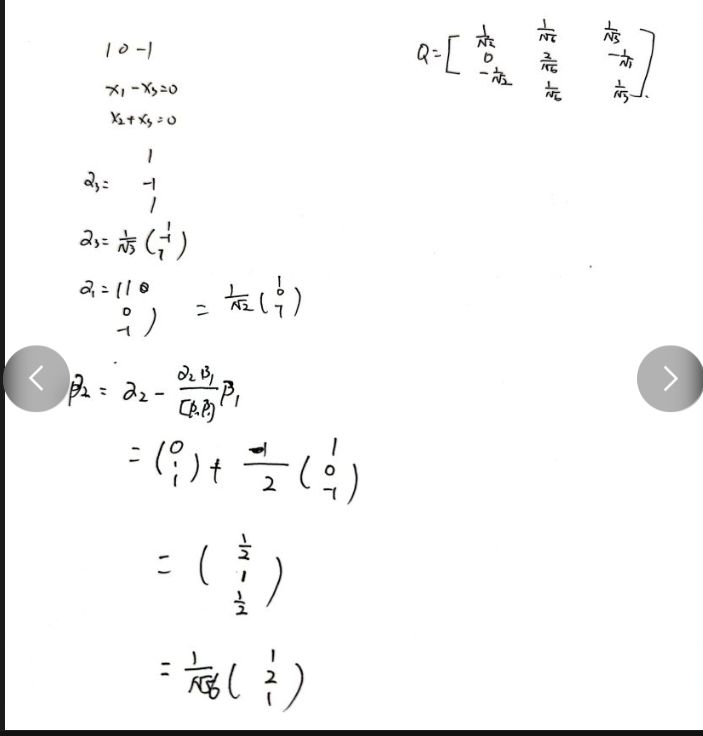 1 0 -1
x₁ - x₃ = 0
x₂ + x₃ = 0
α₃ = (1 -1 1)
α₃ = 1/√3 (1 -1 1)
α₁ = (1 0 -1) = 1/√2 (1 0 -1)
β₂ = α₂ - α₂β₁/[β₁β₁] β₁
= (0 1 1) + 1/2 (1 0 -1)
= (1/2 1 1/2)
= 1/√6 (1 2 1)
Q = [ 1/√2 1/√6 1/√3
0 2/√6 -1/√3
-1/√2 1/√6 1/√3 ].